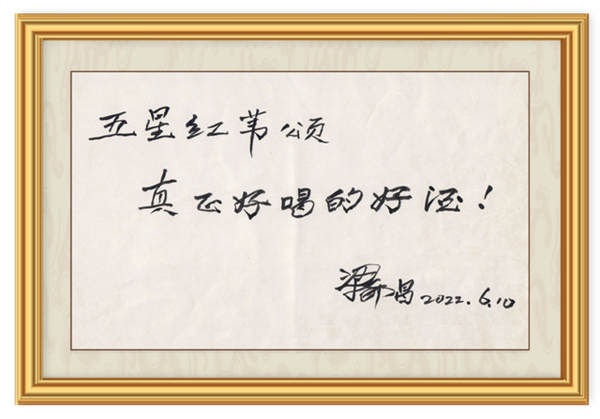 五星红苇颂
真正好喝的好酒！
梁邦昌 2022.6.10